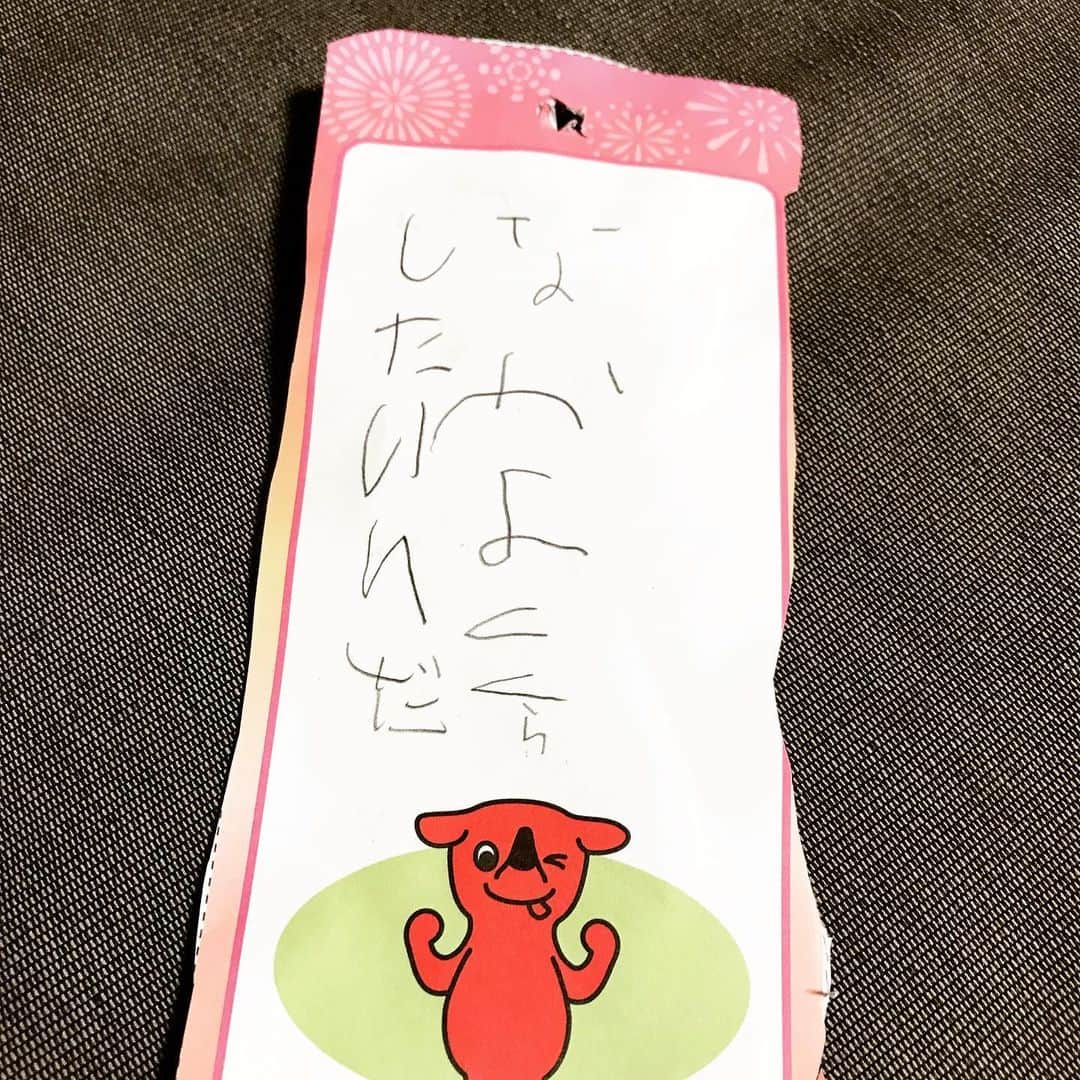 なかよくくら
したいんだ